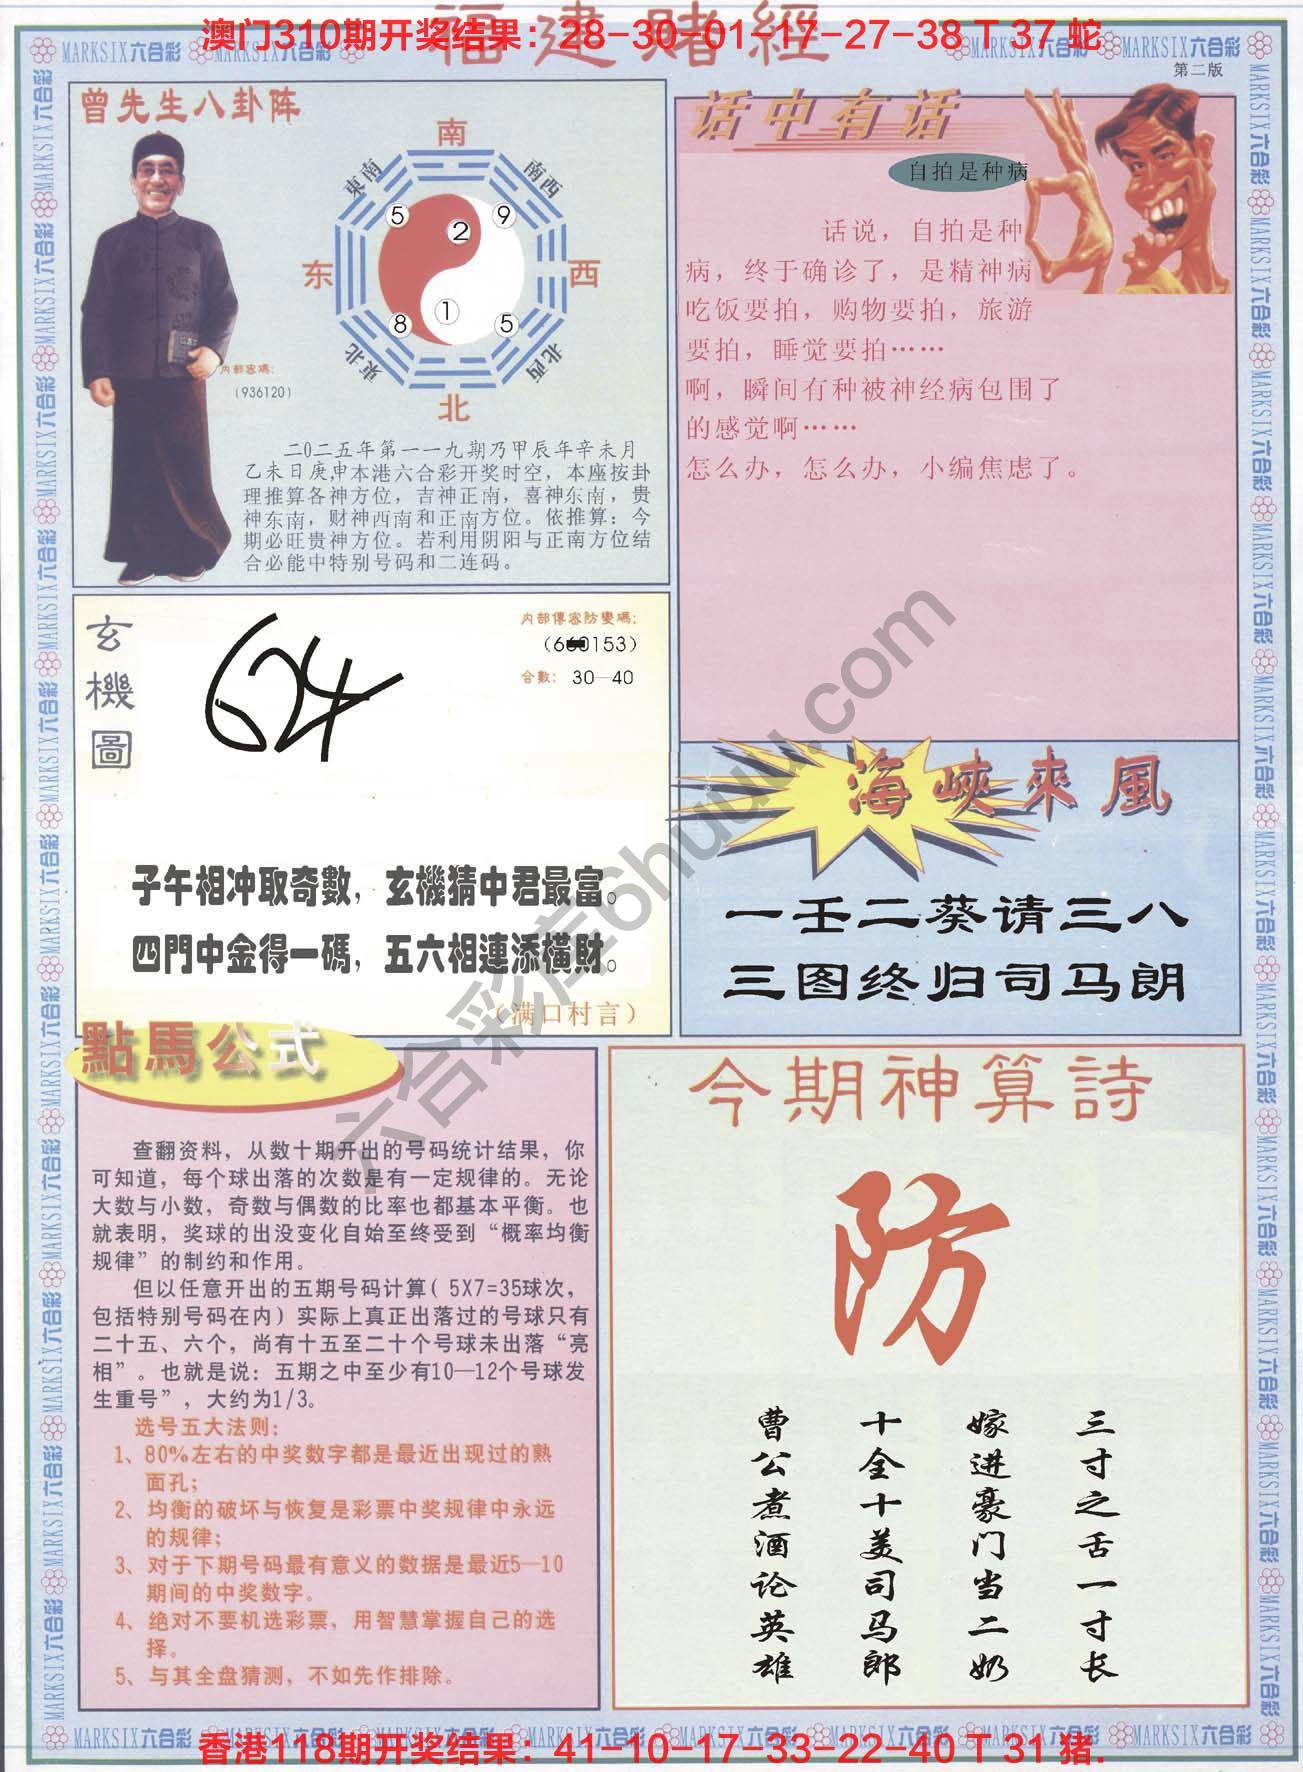 福建賭經
澳门310期开奖结果：28-30-01-17-27-38 T 37 蛇
MARKSIX六合彩
第二版
曾先生八卦阵
南
東南
南西
5
9
2
东
西
8
1
5
東北
北西
北
内部密碼：
(936120)
二0二五年第一一九期乃甲辰年辛未月
乙未日庚申本港六合彩开奖时空，本座按卦
理推算各神方位，吉神正南，喜神东南，贵
神东南，财神西南和正南方位。依推算：今
期必旺贵神方位。若利用阴阳与正南方位结
合必能中特别号码和二连码。
话中有话
自拍是种病
话说，自拍是种
病，终于确诊了，是精神病
吃饭要拍，购物要拍，旅游
要拍，睡觉要拍……
啊，瞬间有种被神经病包围了
的感觉啊……
怎么办，怎么办，小编焦虑了。
玄機圖
内部傳密防變碼：
(660153)
合數：30—40
子午相冲取奇數，玄機猜中君最富。
四門中金得一碼，五六相連添橫財。
（满口村言）
海峽來風
一壬二葵请三八
三图终归司马朗
六合彩库6huuu.com
點馬公式
查翻资料，从数十期开出的号码统计结果，你
可知道，每个球出落的次数是有一定规律的。无论
大数与小数，奇数与偶数的比率也都基本平衡。也
就表明，奖球的出没变化自始至终受到“概率均衡
规律”的制约和作用。
但以任意开出的五期号码计算( 5X7=35球次，
包括特别号码在内）实际上真正出落过的号球只有
二十五、六个，尚有十五至二十个号球未出落“亮
相”。也就是说：五期之中至少有10—12个号球发
生重号”，大约为1/3。
选号五大法则：
1、80%左右的中奖数字都是最近出现过的熟
面孔；
2、均衡的破坏与恢复是彩票中奖规律中永远
的规律；
3、对于下期号码最有意义的数据是最近5—10
期间的中奖数字。
4、绝对不要机选彩票，用智慧掌握自己的选
择。
5、与其全盘猜测，不如先作排除。
今期神算詩
防
三寸之舌一寸长
嫁进豪门当二奶
十全十美司马郎
曹公煮酒论英雄
香港118期开奖结果：41-10-17-33-22-40 T 31 猪.